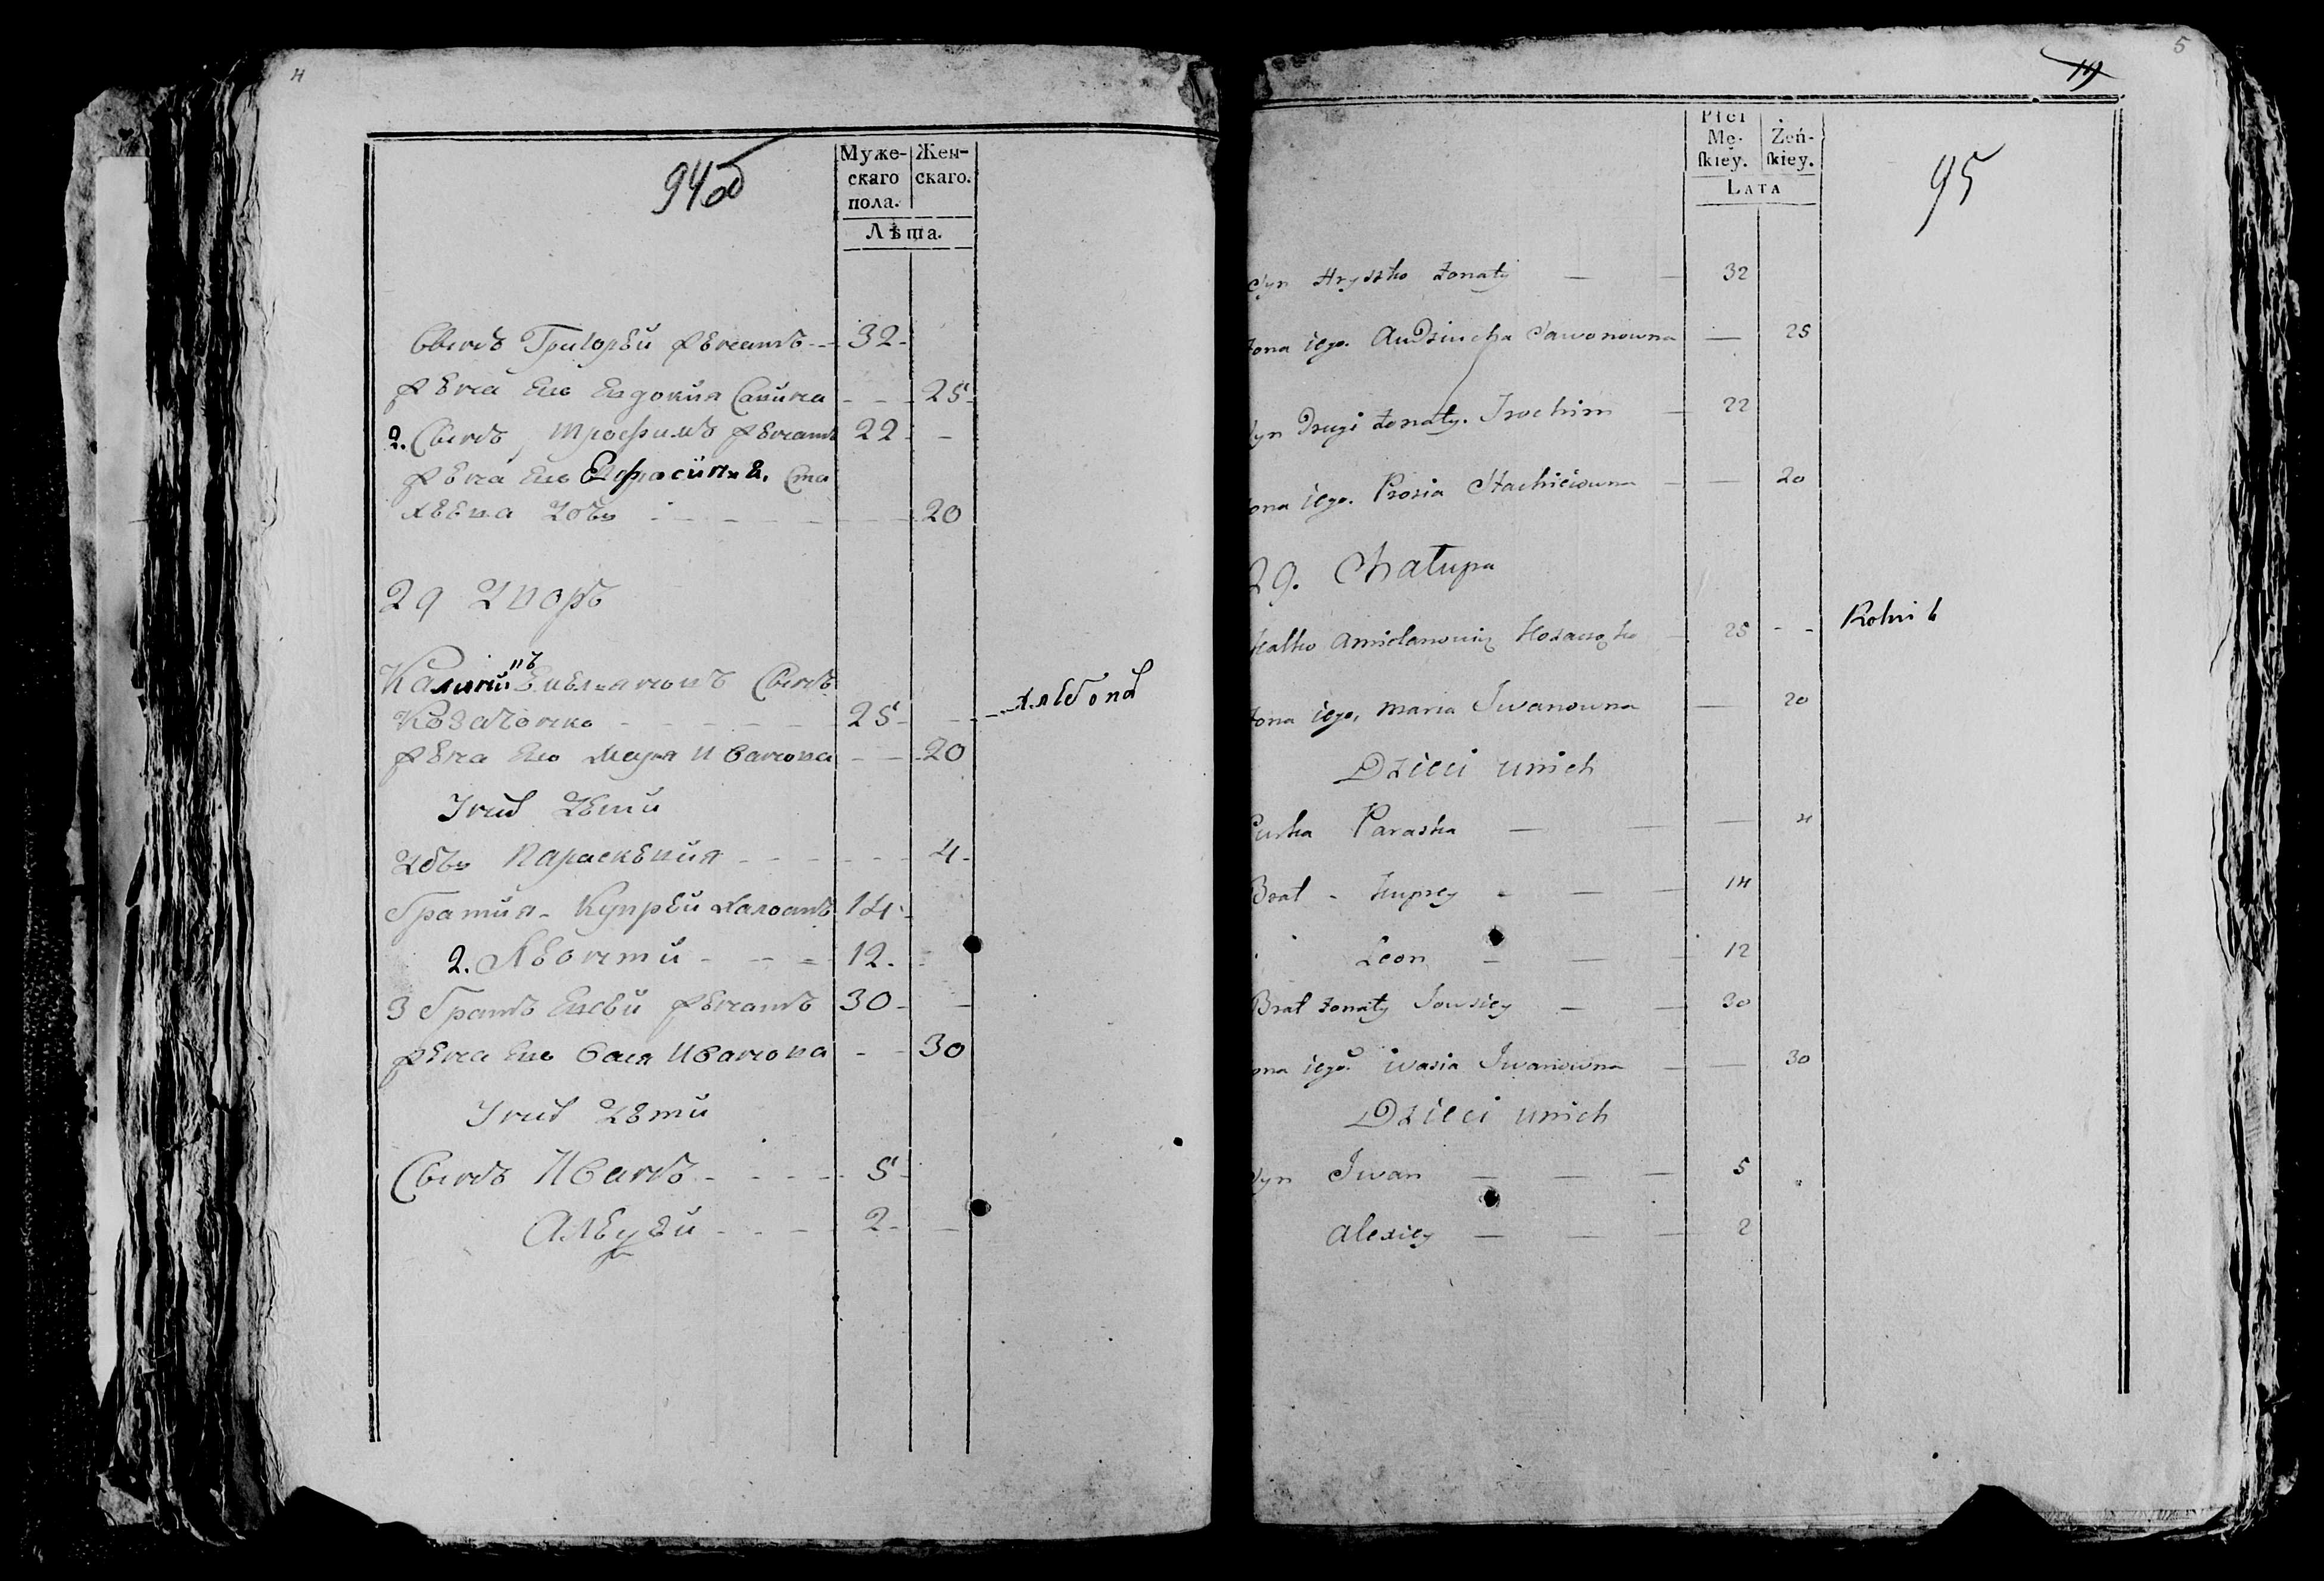 4
94об
Муже-
скаго
пола.
Жен-
скаго.
Лѣта.
Сынъ Григорей женатъ 32
жена Его Евдокия Савина 25
2. Сынъ, трофимъ женатъ 22
жена Его Евфросиния Ста
хеева Дочь 20
29 Дворъ
Емельяновъ Сынъ
Козаченко 25
жена Его Мария Иванова 20
У них Дети
Дочь Параскевия 4
Братия Купрей холостъ 14
2. Леонтий 12
3 братъ Евсей женатъ 30
жена Его Вася Иванова 30
У них Дети
Сынъ Иванъ 5
Алексей 2
5
19
95
Płci
Mę-
ſkiey.
Żeń-
ſkiey.
LATA
Syn Hryszko żonaty — — 32
żona iego. Audziucha Sawonowna — 25
Syn Drugi żonaty. Trochim — 22
żona iego. Prosia Stachiiowna — — 20
29. Chałupa
25 - - Rolnik
żona iego, maria Iwanowna — 20
Dzieci unich
Curka Paraska — — — 4
Brat - Kuprey - — — 14
Leon — — — 12
Brat żonaty Jowsiey — — 30
żona iego wasia Iwanowna — — 30
Dzieci unich
Syn Iwan — — — 5
Alexiey — — — 2